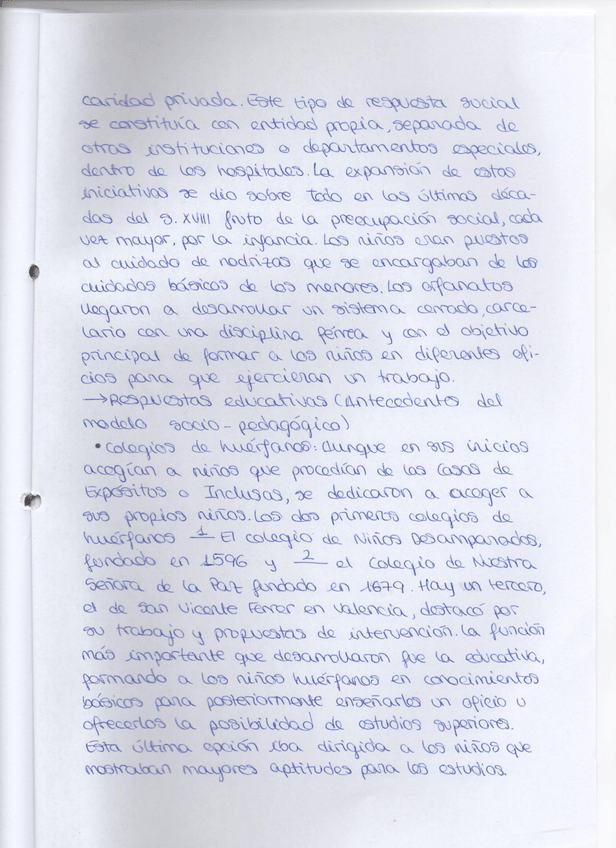 caridad privada. Este tipo de respuesta social
se constituía con entidad propia, separada de
otras instituciones o departamentos especiales,
dentro de los hospitales. La expansión de estas
iniciativas se dio sobre todo en las últimas déca-
das del s. XVIII fruto de la preocupación social, cada
vez mayor, por la infancia. Los niños eran puestos
al cuidado de nodrizas que se encargaban de los
cuidados básicos de los menores. Los orfanatos
llegaron a desarrollar un sistema cerrado, carce-
lario con una disciplina férrea y con el objetivo
principal de formar a los niños en diferentes ofi-
cios para que ejercieran un trabajo.
→Respuestas educativas (Antecedentes del
modelo socio-pedagógico)
• Colegios de huérfanos: Aunque en sus inicios
acogían a niños que procedían de las Casas de
Expósitos o Inclusas, se dedicaron a acoger a
sus propios niños. Los dos primeros colegios de
huérfanos 1 El colegio de Niños Desamparados,
fundado en 1596 y 2 el Colegio de Nuestra
Señora de la Paz fundado en 1679. Hay un tercero,
el de San Vicente Ferrer en Valencia, destacó por
su trabajo y propuestas de intervención. La función
más importante que desarrollaron fue la educativa,
formando a los niños huérfanos en conocimientos
básicos para posteriormente enseñarlos un oficio u
ofrecerlos la posibilidad de estudios superiores.
Esta última opción iba dirigida a los niños que
mostraban mayores aptitudes para los estudios.